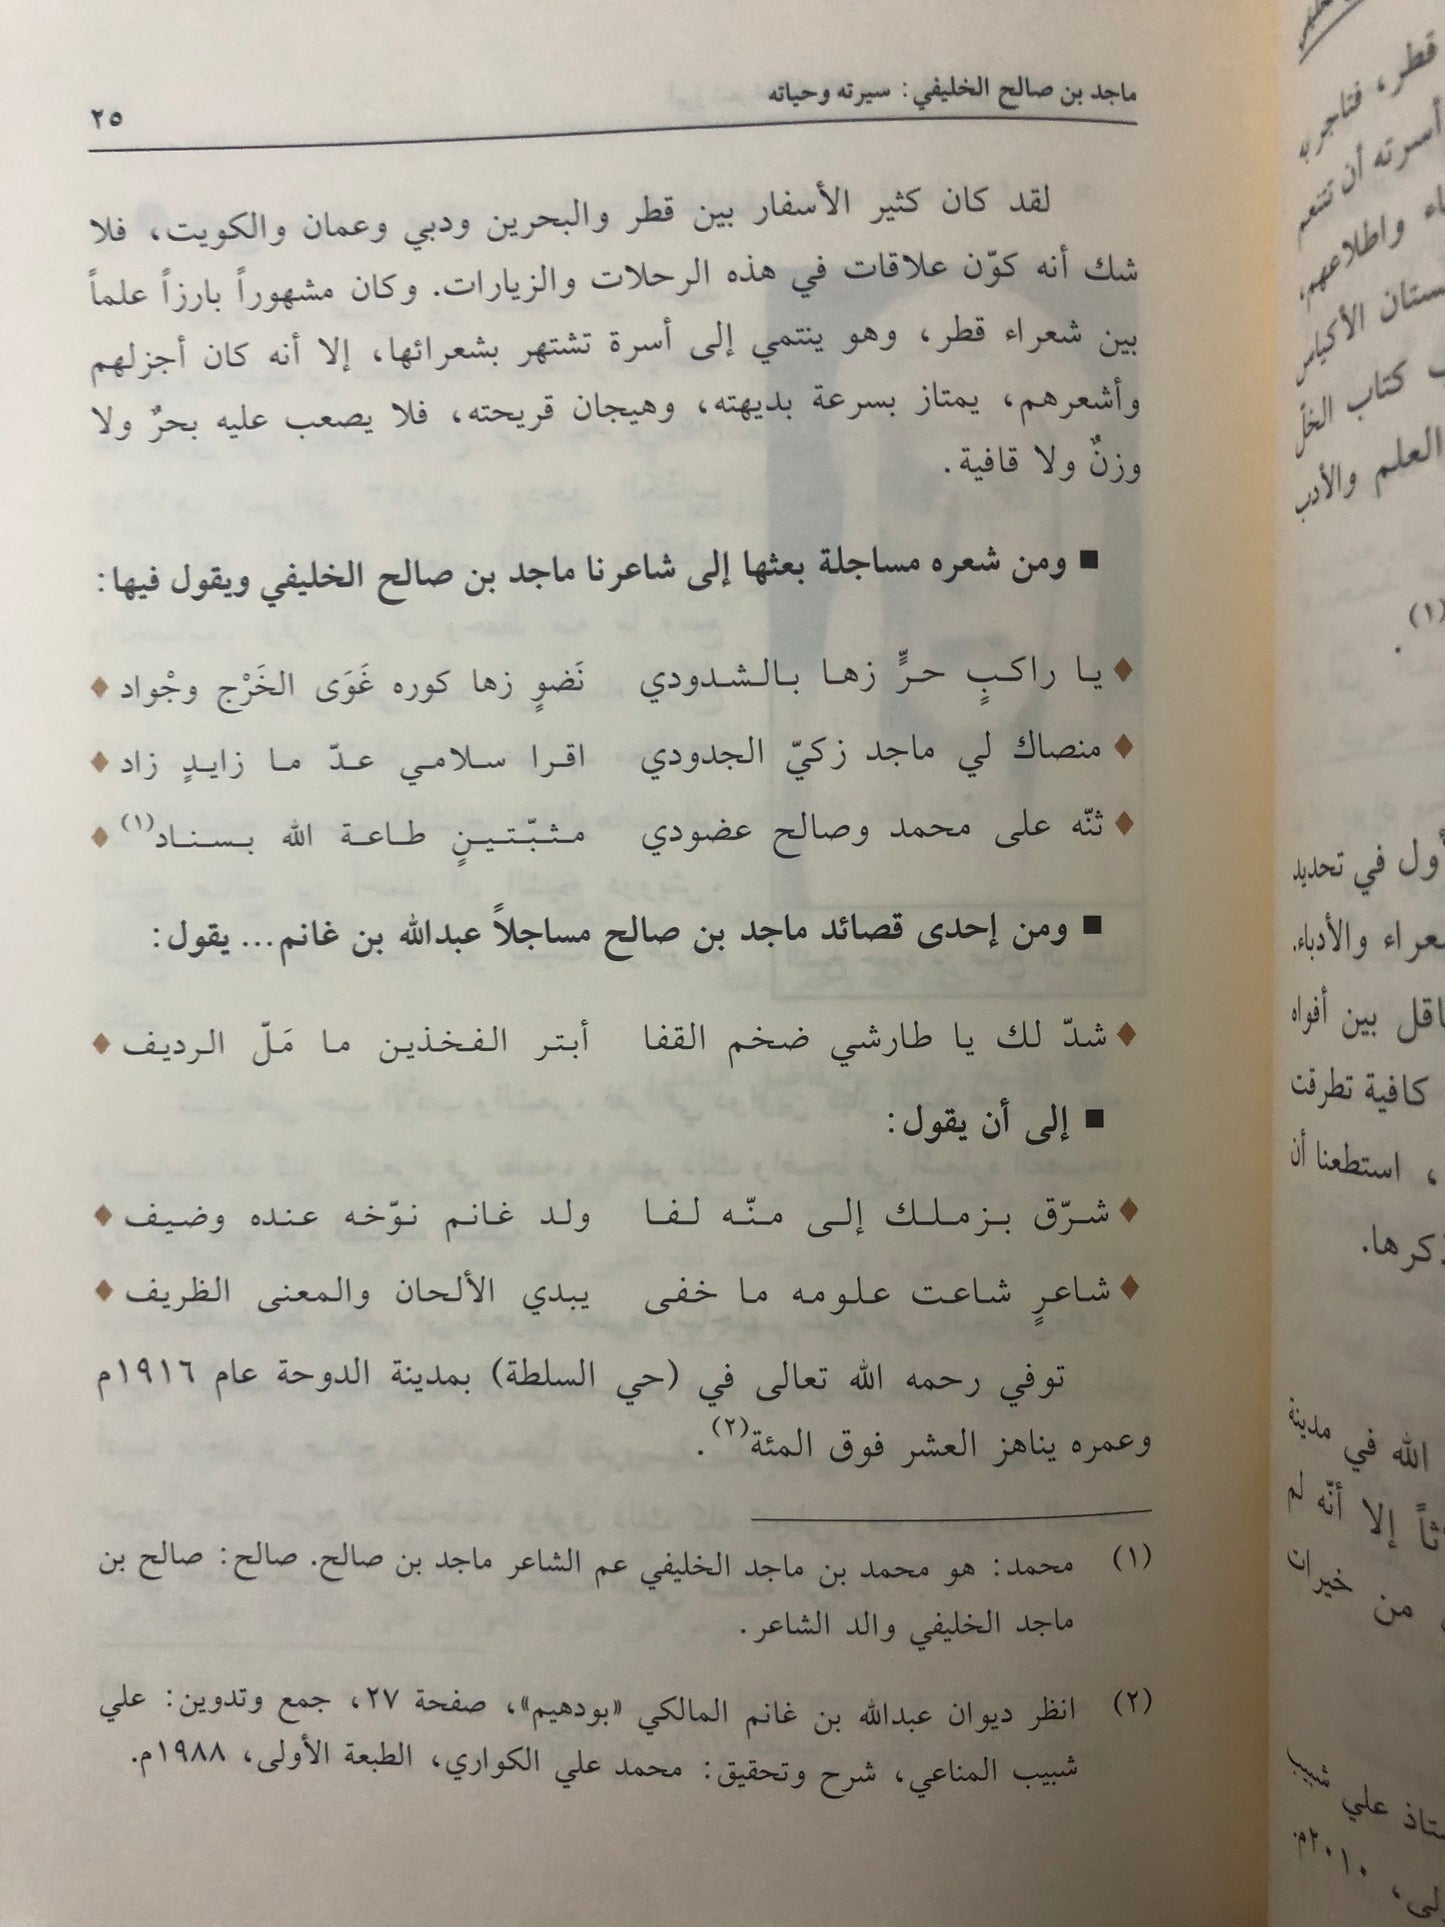 ماجد بن صالح الخليفي: سيرته وحياته
٢٥
لقد كان كثير الأسفار بين قطر والبحرين ودبي وعمان والكويت، فلا
شك أنه كوّن علاقات في هذه الرحلات والزيارات. وكان مشهوراً بارزاً علماً
بين شعراء قطر، وهو ينتمي إلى أسرة تشتهر بشعرائها، إلا أنه كان أجزلهم
وأشعرهم، يمتاز بسرعة بديهته، وهيجان قريحته، فلا يصعب عليه بحرٌ ولا
وزنٌ ولا قافية.
■ ومن شعره مساجلة بعثها إلى شاعرنا ماجد بن صالح الخليفي ويقول فيها:
♦ يا راكبٍ حرٍّ زها بالشدودي نَضوٍ زها كوره غَوَى الخَرْج وجْواد ♦
♦ منصاك لي ماجد زكيّ الجدودي اقرا سلامي عدّ ما زايدٍ زاد ♦
♦ ثنّه على محمد وصالح عضودي مثبّتينٍ طاعة الله بسناد(١) ♦
■ ومن إحدى قصائد ماجد بن صالح مساجلاً عبدالله بن غانم... يقول:
♦ شدّ لك يا طارشي ضخم القفا أبتر الفخذين ما مَلّ الرديف ♦
■ إلى أن يقول:
♦ شرّق بزملك إلى منّه لفا ولد غانم نوّخه عنده وضيف ♦
♦ شاعرٍ شاعت علومه ما خفى يبدي الألحان والمعنى الظريف ♦
توفي رحمه الله تعالى في (حي السلطة) بمدينة الدوحة عام ١٩١٦م
وعمره يناهز العشر فوق المئة(٢).
(١) محمد: هو محمد بن ماجد الخليفي عم الشاعر ماجد بن صالح. صالح: صالح بن
ماجد الخليفي والد الشاعر.
(٢) انظر ديوان عبدالله بن غانم المالكي «بودهيم»، صفحة ٢٧، جمع وتدوين: علي
شبيب المناعي، شرح وتحقيق: محمد علي الكواري، الطبعة الأولى، ١٩٨٨م.
قطر، فتاجر به
أسرته أن تنعم
واطلاعهم،
الأكياس
كتاب الخلّ
العلم والأدب
(١).
في تحديد
والأدباء.
بين أفواه
كافية تطرقت
، استطعنا أن
الله في مدينة
إلا أنّه لم
من خيران
علي شبيب
٢٠١٠م.